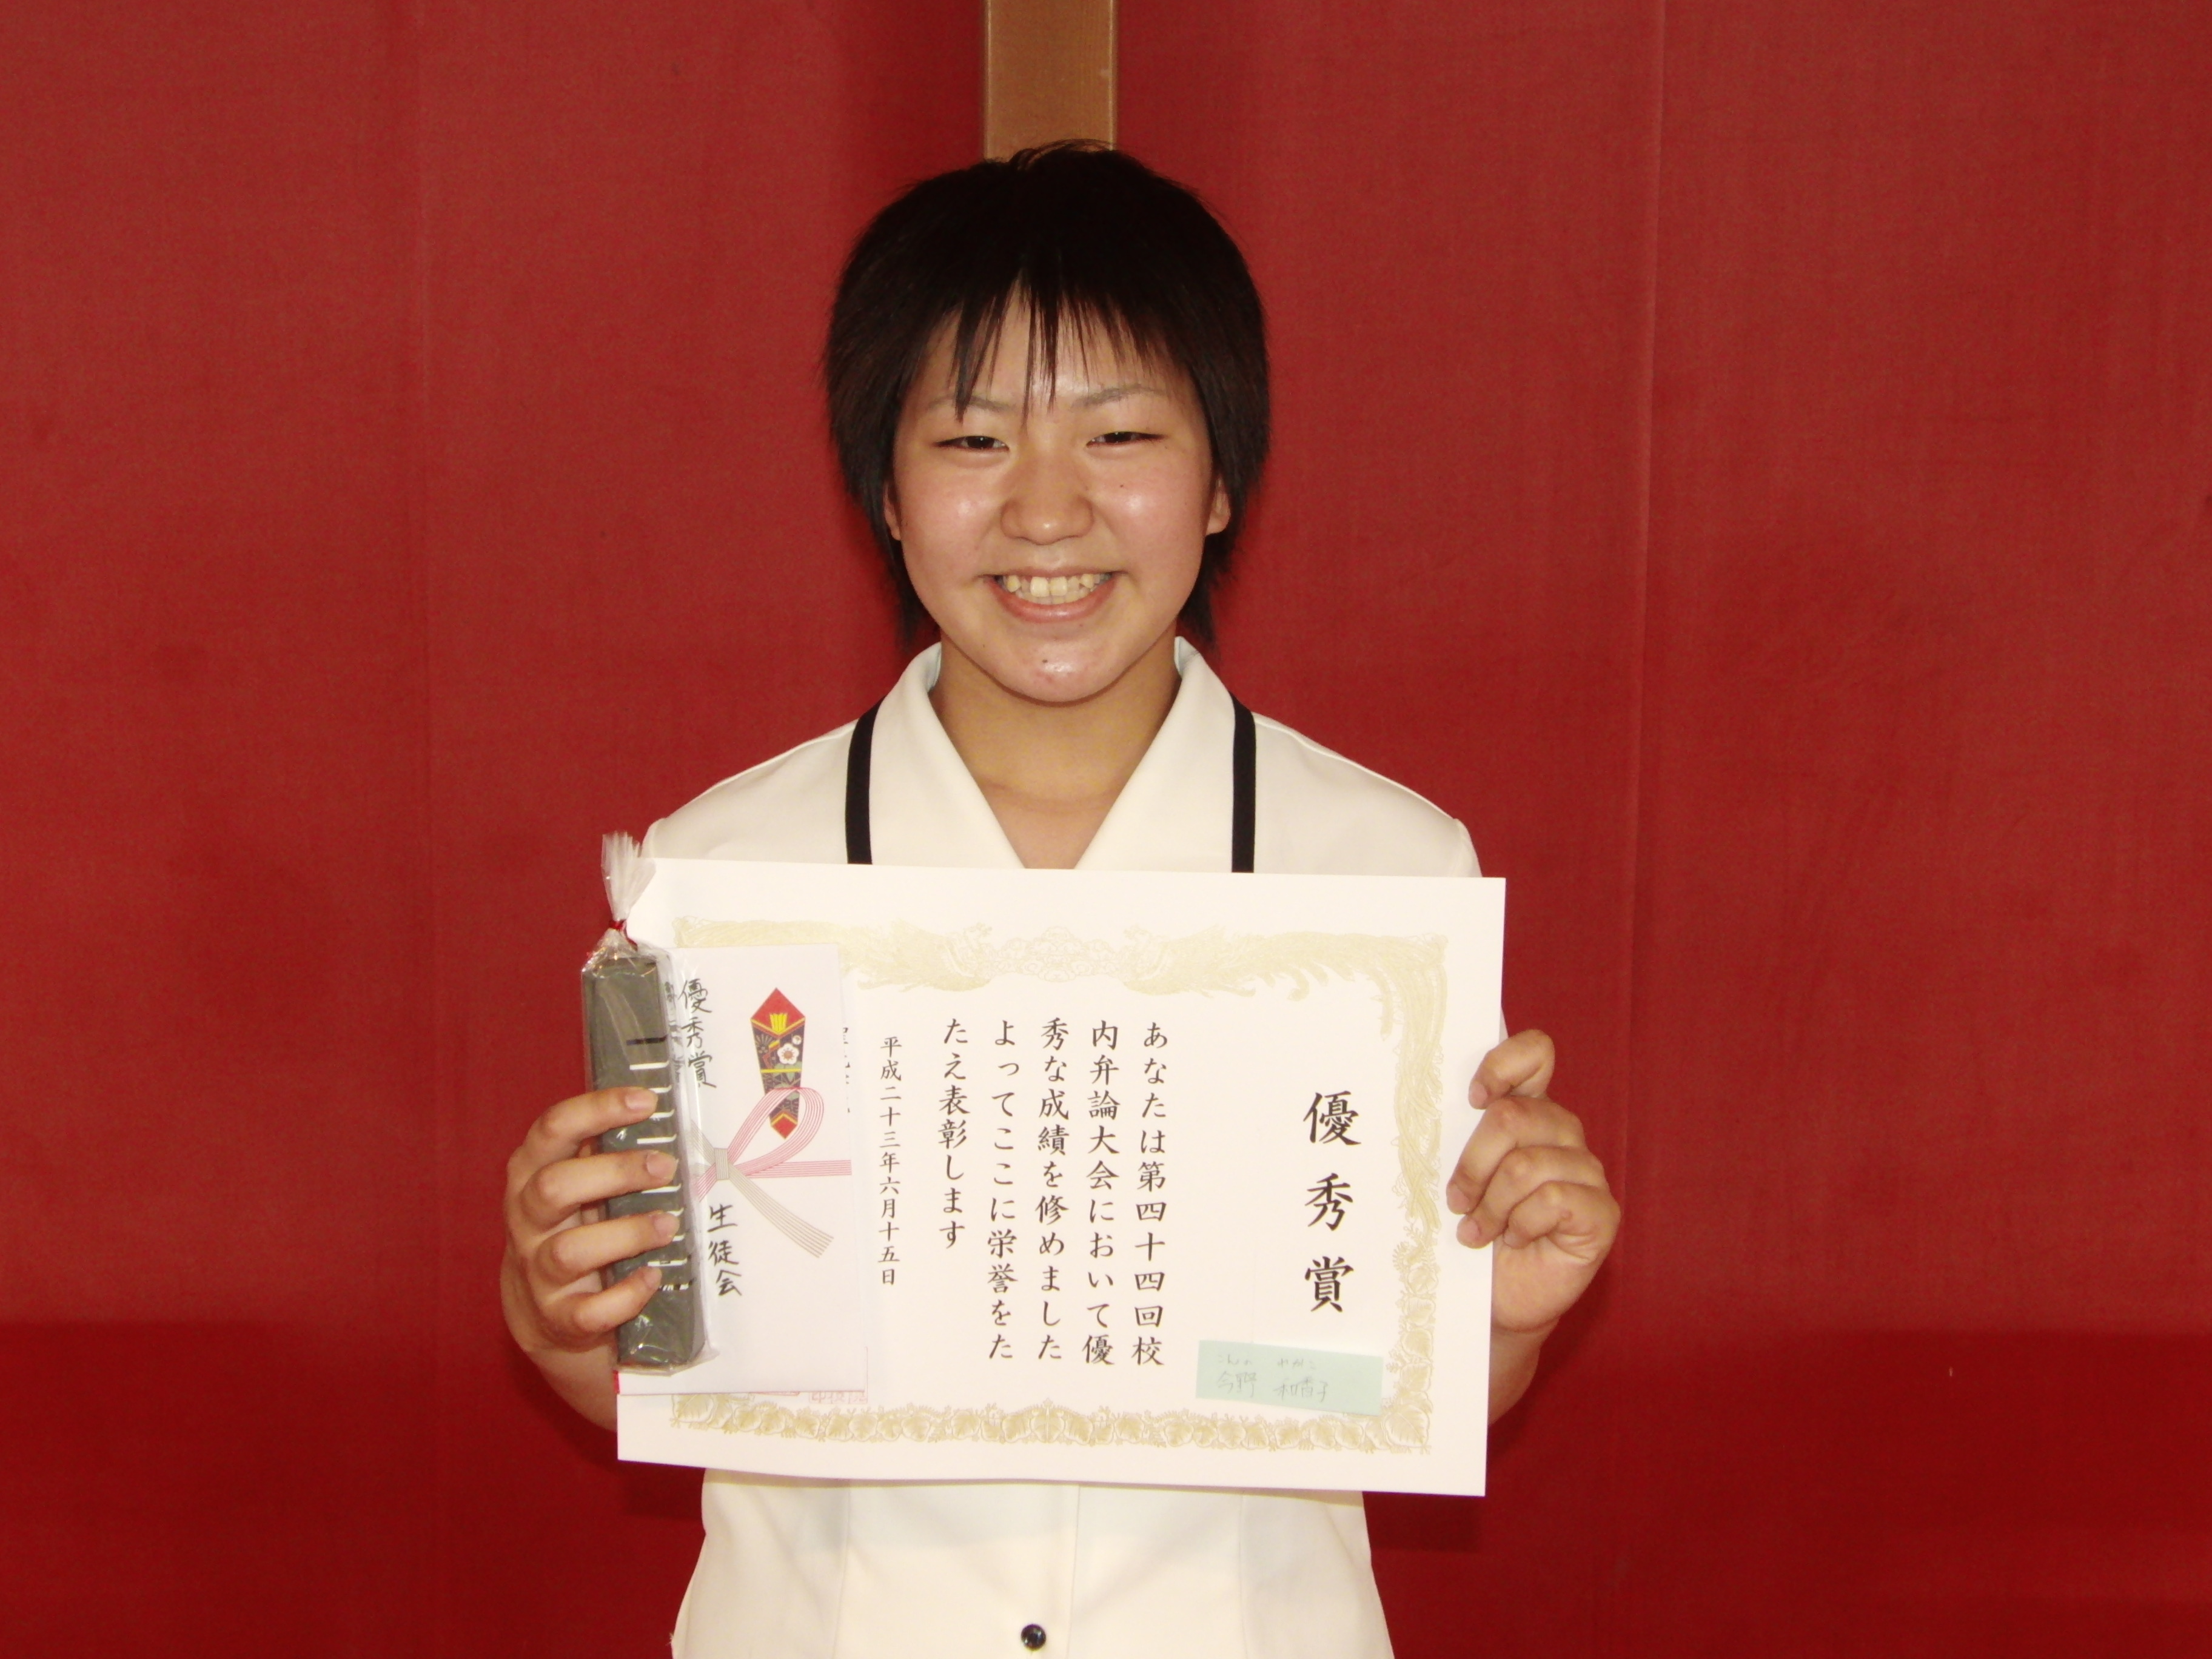 優秀賞
あなたは第四十四回校
内弁論大会において優
秀な成績を修めました
よってここに栄誉をた
たえ表彰します
平成二十三年六月十五日
優秀賞
生徒会
こんの わかこ
今野 和香子